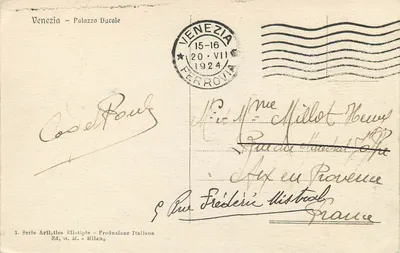 Venezia - Palazzo Ducale
VENEZIA
15-16
20 · VII
1924
FERROVIA
Mr & Mme Millot Henry
Rue du Maréchal Joffre
Aix en Provence
5 Rue Frédéric Mistral
France
1. Serie Artistica Eliotipia - Produzione Italiana
Ed. - Milano